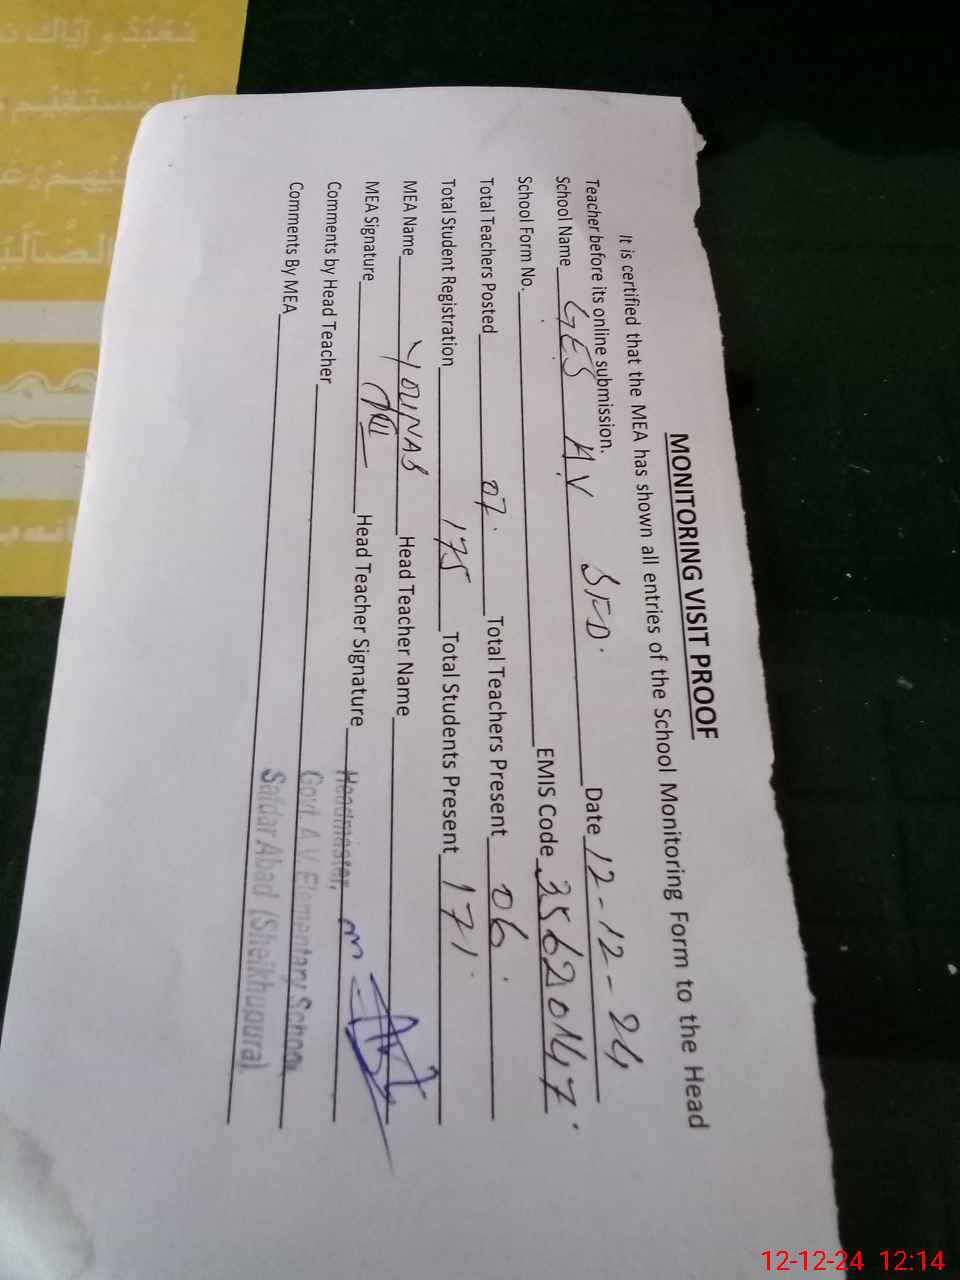 MONITORING VISIT PROOF
It is certified that the MEA has shown all entries of the School Monitoring Form to the Head
Teacher before its online submission.
School Name GES A.V SFD. Date 12-12-24
School Form No. EMIS Code 35620147
Total Teachers Posted 07 Total Teachers Present 06
Total Student Registration 175 Total Students Present 171
MEA Name YOUNAS Head Teacher Name
MEA Signature Head Teacher Signature
Comments by Head Teacher
Comments By MEA
Headmaster,
Govt. A.V. Elementary School
Safdar Abad (Sheikhupura)
نعبد و اياك
المستقيم
الضالين
12-12-24 12:14